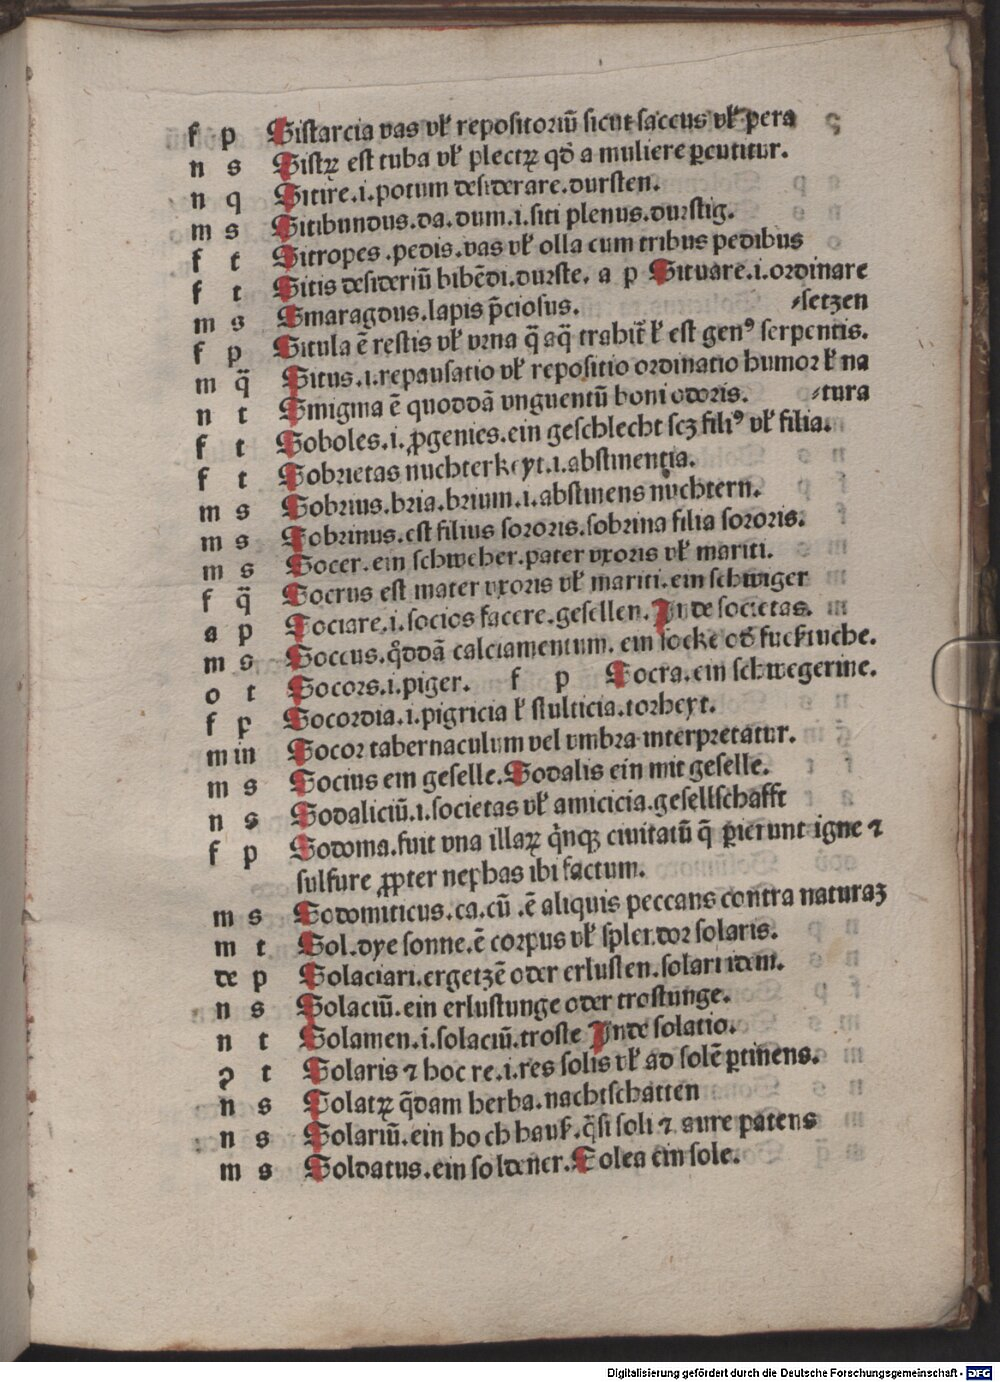 f p Sistarcia vas vł repositoriū sicut saccus vł pera
n s Sistꝝ est tuba vł plectꝝ qđ a muliere ꝑcutitur.
n q Sitire.i.potum desiderare.dursten.
m s Sitibundus.da.dum.i.siti plenus.durstig.
f t Sitropes.pedis.vas vł olla cum tribus pedibus
f t Sitis desideriū bibēdi.durste. a p Situare.i.ordinare
m s Smaragdus.lapis p̄ciosus. setzen
f p Situla ē restis vł vrna q̄ aq̄ trahit̄ ł est genꝰ serpentis.
m q̄ Situs.i.repausatio vł repositio ordinatio humor ł na
n t Smigma ē quoddā vnguentū boni odoris. tura
f t Soboles.i.ꝓgenies.ein geschlecht scꝫ filiꝰ vł filia.
f t Sobrietas nuchterkeyt.i.abstinentia.
m s Sobrius.bria.brium.i.abstinens nuchtern.
m s Sobrinus.est filius sororis.sobrina filia sororis.
m s Socer.ein schweher.pater vxoris vł mariti.
f q̄ Socrus est mater vxoris vł mariti.ein schwiger
a p Sociare.i.socios facere.gesellen.Inde societas.
m s Soccus.q̊ddā calciamentum. ein socke od̄ fucktuche.
o t Socors.i.piger. f p Socra.ein schwegerine.
f p Socordia.i.pigricia ł stulticia.torheyt.
m in Socor tabernaculum vel vmbra interpretatur.
m s Socius ein geselle.Sodalis ein mit geselle.
n s Sodaliciū.i.societas vł amicicia.gesellschafft
f p Sodoma.fuit vna illaꝝ q̄nqꝫ ciuitatū q̄ perierunt igne ⁊
sulfure ꝓpter nephas ibi factum.
m s Sodomiticus.ca.cū.ē aliquis peccans contra naturaꝫ
m t Sol.dye sonne.ē corpus vł splendor solaris.
de p Solaciari.ergetzē oder erlusten.solari idem.
n s Solaciū.ein erlustunge oder trostunge.
n t Solamen.i.solaciū.troste Inde solatio.
ꝯ t Solaris ⁊ hoc re.i.res solis vł ad solē ꝑtinens.
n s Solatꝝ q̄dam herba.nachtschatten
n s Solariū.ein hoch hauß.q̄si soli ⁊ aure patens
m s Soldatus.ein soldener.Solea ein sole.
Digitalisierung gefördert durch die Deutsche Forschungsgemeinschaft - DFG